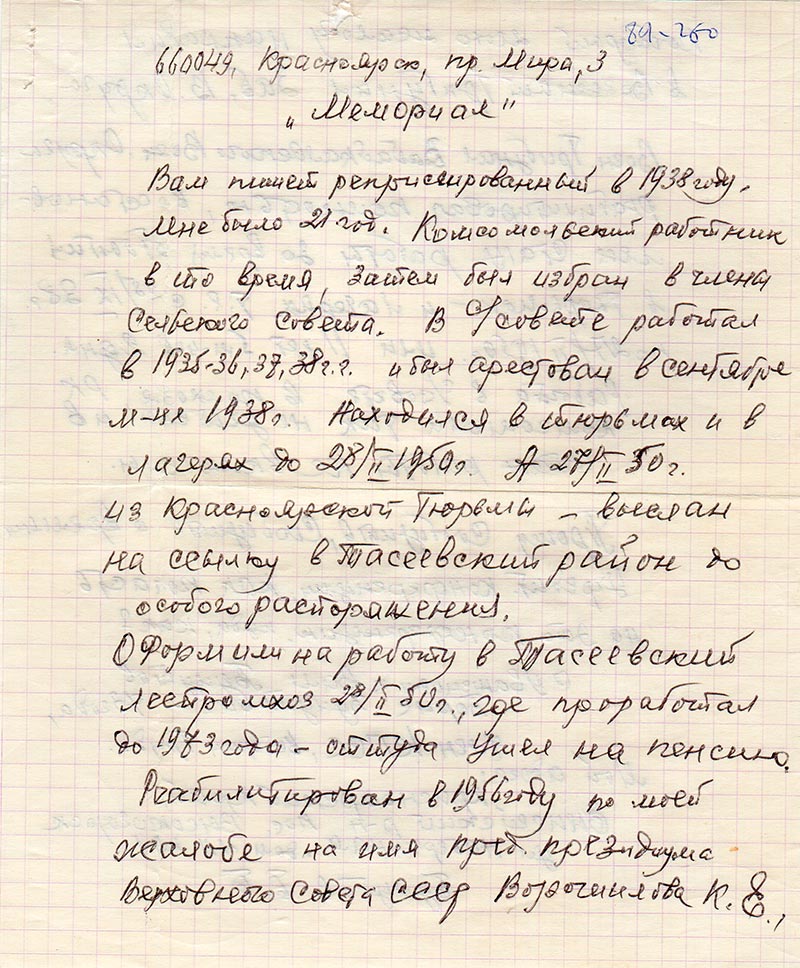 89-260
660049, Красноярск, пр. Мира, 3
„Мемориал"
Вам пишет репрессированный в 1938 году.
Мне было 21 год. Комсомольский работник
в это время, затем был избран в члены
Сельского совета. В С/совете работал
в 1935-36, 37, 38 г.г. и был арестован в сентябре
м-це 1938г. Находился в тюрьмах и в
лагерях до 28/II 1950г. А 27/II 50г.
из Красноярской Тюрьмы – выслан
на ссылку в Тасеевский район до
особого распоряжения.
Оформили на работу в Тасеевский
леспромхоз 28/II 50г., где проработал
до 1973 года – оттуда ушел на пенсию.
Реабилитирован в 1956 году по моей
жалобе на имя пред. президиума
Верховного Совета СССР Ворошилова К. Е.,